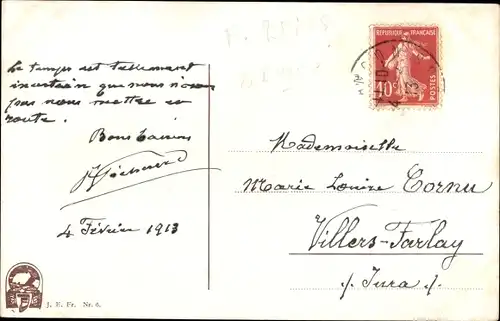 Le temps est tellement
incertain que nous n'osons
pas nous mettre en
route.
Bons baisers
4 Février 1913
REPUBLIQUE FRANÇAISE
POSTES
10c
13
Mademoiselle
Marie Louise Cornu
Villers-Farlay
./. Jura ./.
J. E. Fr. Nr. 6.